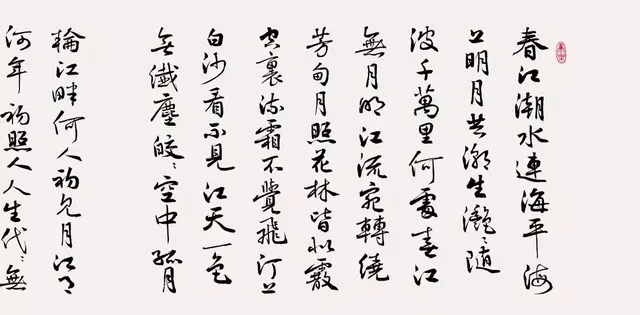 春江潮水連海平海
上明月共潮生灩〻隨
波千萬里何處春江
無月明江流宛轉繞
芳甸月照花林皆似霰
空裏流霜不覺飛汀上
白沙看不見江天一色
無纖塵皎〻空中孤月
輪江畔何人初見月江月
何年初照人人生代〻無